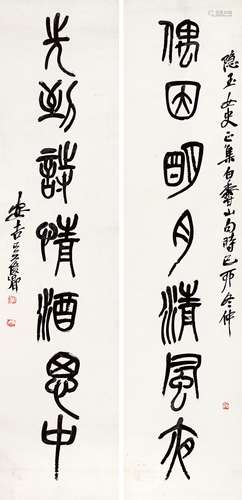 隐玉女史正集白香山句時己卯冬仲
偶因明月清風夜
先到詩情酒思中
安吉吳長鄴